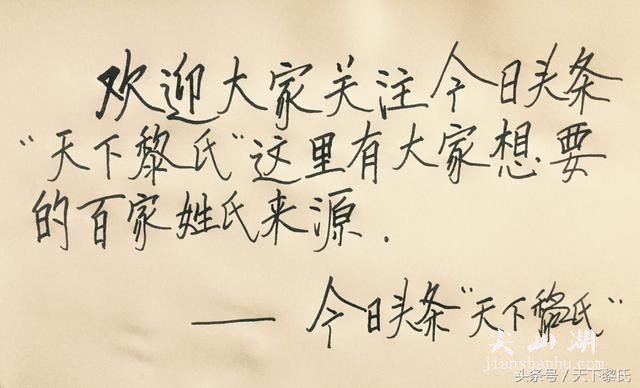 欢迎大家关注今日头条
“天下黎氏”这里有大家想要
的百家姓氏来源.
——今日头条“天下黎氏”
尖山湖
jianshanhu.com
头条号/天下黎氏